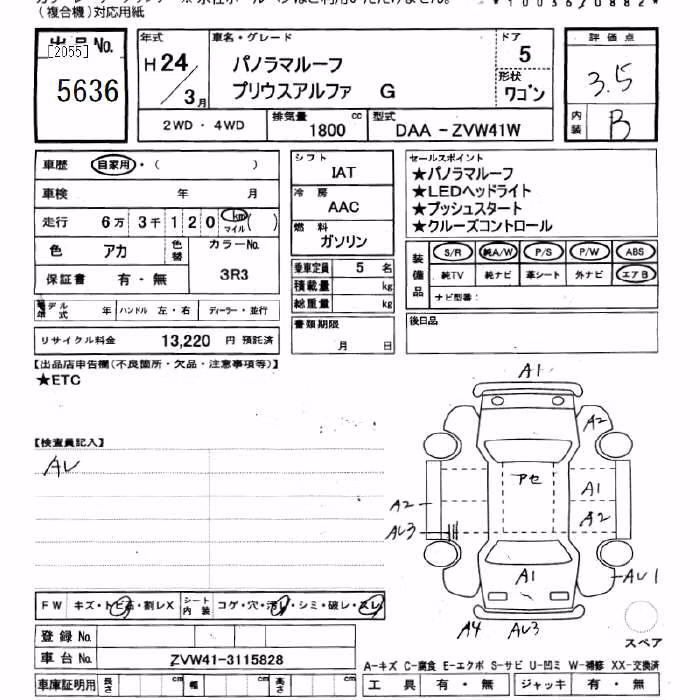 (複合機)対応用紙
出品No.
[2055]
5636
年式
H 24 / 3月
車名・グレード
パノラマルーフ
プリウスアルファ G
ドア
5
形状
ワゴン
2WD・4WD
排気量 1800 cc
型式 DAA－ZVW41W
評価点
3.5
内装 B
車歴 自家用・( )
車検 年 月
走行 6万 3千 1 2 0 km マイル ( )
色 アカ
色替
カラーNo. 3R3
保証書 有・無
モデル年式 年 ハンドル 左・右 ディーラー・並行
リサイクル料金 13,220 円 預託済
シフト
IAT
冷房
AAC
燃料
ガソリン
乗車定員 5 名
積載量 kg
総重量 kg
書類期限
月 日
セールスポイント
★パノラマルーフ
★LEDヘッドライト
★プッシュスタート
★クルーズコントロール
装備品
S/R 純A/W P/S P/W ABS
純TV 純ナビ 革シート 外ナビ エアB
ナビ型番:
後日品
【出品店申告欄(不良箇所・欠品・注意事項等)】
★ETC
【検査員記入】
AU
A1
A2
アセ
A1
A2
A2
AU3
A1
AU1
A4 AU3
スペア
FW キズ・トビ石・割レX
シート内装 コゲ・穴・汚レ・シミ・破レ・スレ
登録No.
車台No. ZVW41-3115828
車庫証明用 長さ cm 幅 cm 高さ cm
A-キズ C-腐食 E-エクボ S-サビ U-凹ミ W-補修 XX-交換済
工具 有・無 ジャッキ 有・無